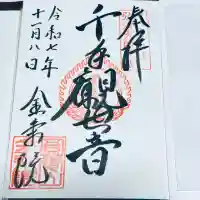 奉拝
千手観世音
令和七年
十一月八日
金剛院